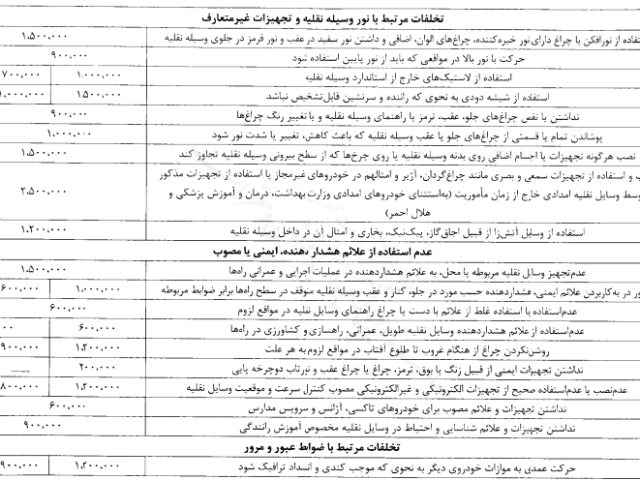 تخلفات مرتبط با نور وسیله نقلیه و تجهیزات غیرمتعارف
استفاده از نورافکن یا چراغ دارای نور خیره‌کننده، چراغ‌های الوان، اضافی و داشتن نور سفید در عقب و نور قرمز در جلوی وسیله نقلیه ۱،۵۰۰،۰۰۰
حرکت با نور بالا در مواقعی که باید از نور پایین استفاده شود ۹۰۰،۰۰۰
استفاده از لاستیک‌های خارج از استاندارد وسیله نقلیه ۱،۰۰۰،۰۰۰ ۷۰۰،۰۰۰
استفاده از شیشه دودی به نحوی که راننده و سرنشین قابل‌تشخیص نباشد ۱،۵۰۰،۰۰۰ ۱،۰۰۰،۰۰۰
نداشتن یا نقص چراغ‌های جلو، عقب، ترمز یا راهنمای وسیله نقلیه و یا تغییر رنگ چراغ‌ها ۹۰۰،۰۰۰
پوشاندن تمام یا قسمتی از چراغ‌های جلو یا عقب وسیله نقلیه که باعث کاهش، تغییر یا شدت نور شود ۱،۰۰۰،۰۰۰
نصب هرگونه تجهیزات یا اجسام اضافی روی بدنه وسیله نقلیه یا روی چرخ‌ها که از سطح بیرونی وسیله نقلیه تجاوز کند ۱،۵۰۰،۰۰۰
ب و استفاده از تجهیزات سمعی و بصری مانند چراغ‌گردان، آژیر و امثالهم در خودروهای غیرمجاز یا استفاده از تجهیزات مذکور
توسط وسایل نقلیه امدادی خارج از زمان مأموریت (به‌استثنای خودروهای امدادی وزارت بهداشت، درمان و آموزش پزشکی و ۲،۵۰۰،۰۰۰
هلال احمر)
استفاده از وسایل آتش‌زا از قبیل اجاق‌گاز، پیک‌نیک، بخاری و امثال آن در داخل وسیله نقلیه ۱،۲۰۰،۰۰۰
عدم استفاده از علائم هشدار دهنده، ایمنی یا مصوب
عدم‌تجهیز وسایل نقلیه مربوطه یا محل، به علائم هشداردهنده در عملیات اجرایی و عمرانی راه‌ها ۱،۵۰۰،۰۰۰
ور در به‌کاربردن علائم ایمنی، هشداردهنده حسب مورد در جلو، کنار و عقب وسیله نقلیه متوقف در سطح راه‌ها برابر ضوابط مربوطه ۱،۰۰۰،۰۰۰ ۶۰۰،۰۰۰
عدم‌استفاده یا استفاده غلط از علائم با دست یا چراغ راهنمای وسایل نقلیه در مواقع لزوم ۶۰۰،۰۰۰
عدم‌استفاده از علائم هشداردهنده وسایل نقلیه طویل، عمرانی، راهسازی و کشاورزی در راه‌ها ۶۰۰،۰۰۰ ۰۰
روشن‌نکردن چراغ از هنگام غروب تا طلوع آفتاب در مواقع لزوم به هر علت ۱،۲۰۰،۰۰۰ ۹۰۰،۰۰۰
نداشتن تجهیزات ایمنی از قبیل زنگ یا بوق، ترمز، چراغ یا چراغ عقب و نورتاب دوچرخه پایی ۲۰۰،۰۰۰
عدم‌نصب یا عدم‌استفاده صحیح از تجهیزات الکترونیکی و غیرالکترونیکی مصوب کنترل سرعت و موقعیت وسایل نقلیه ۱،۲۰۰،۰۰۰ ۸۰۰،۰۰۰
نداشتن تجهیزات و علائم مصوب برای خودروهای تاکسی، آژانس و سرویس مدارس ۶۰۰،۰۰۰
نداشتن تجهیزات و علائم شناسایی و احتیاط در وسایل نقلیه مخصوص آموزش رانندگی ۹۰۰،۰۰۰
تخلفات مرتبط با ضوابط عبور و مرور
حرکت عمدی به موازات خودروی دیگر به نحوی که موجب کندی و انسداد ترافیک شود ۱،۲۰۰،۰۰۰ ۹۰۰،۰۰۰